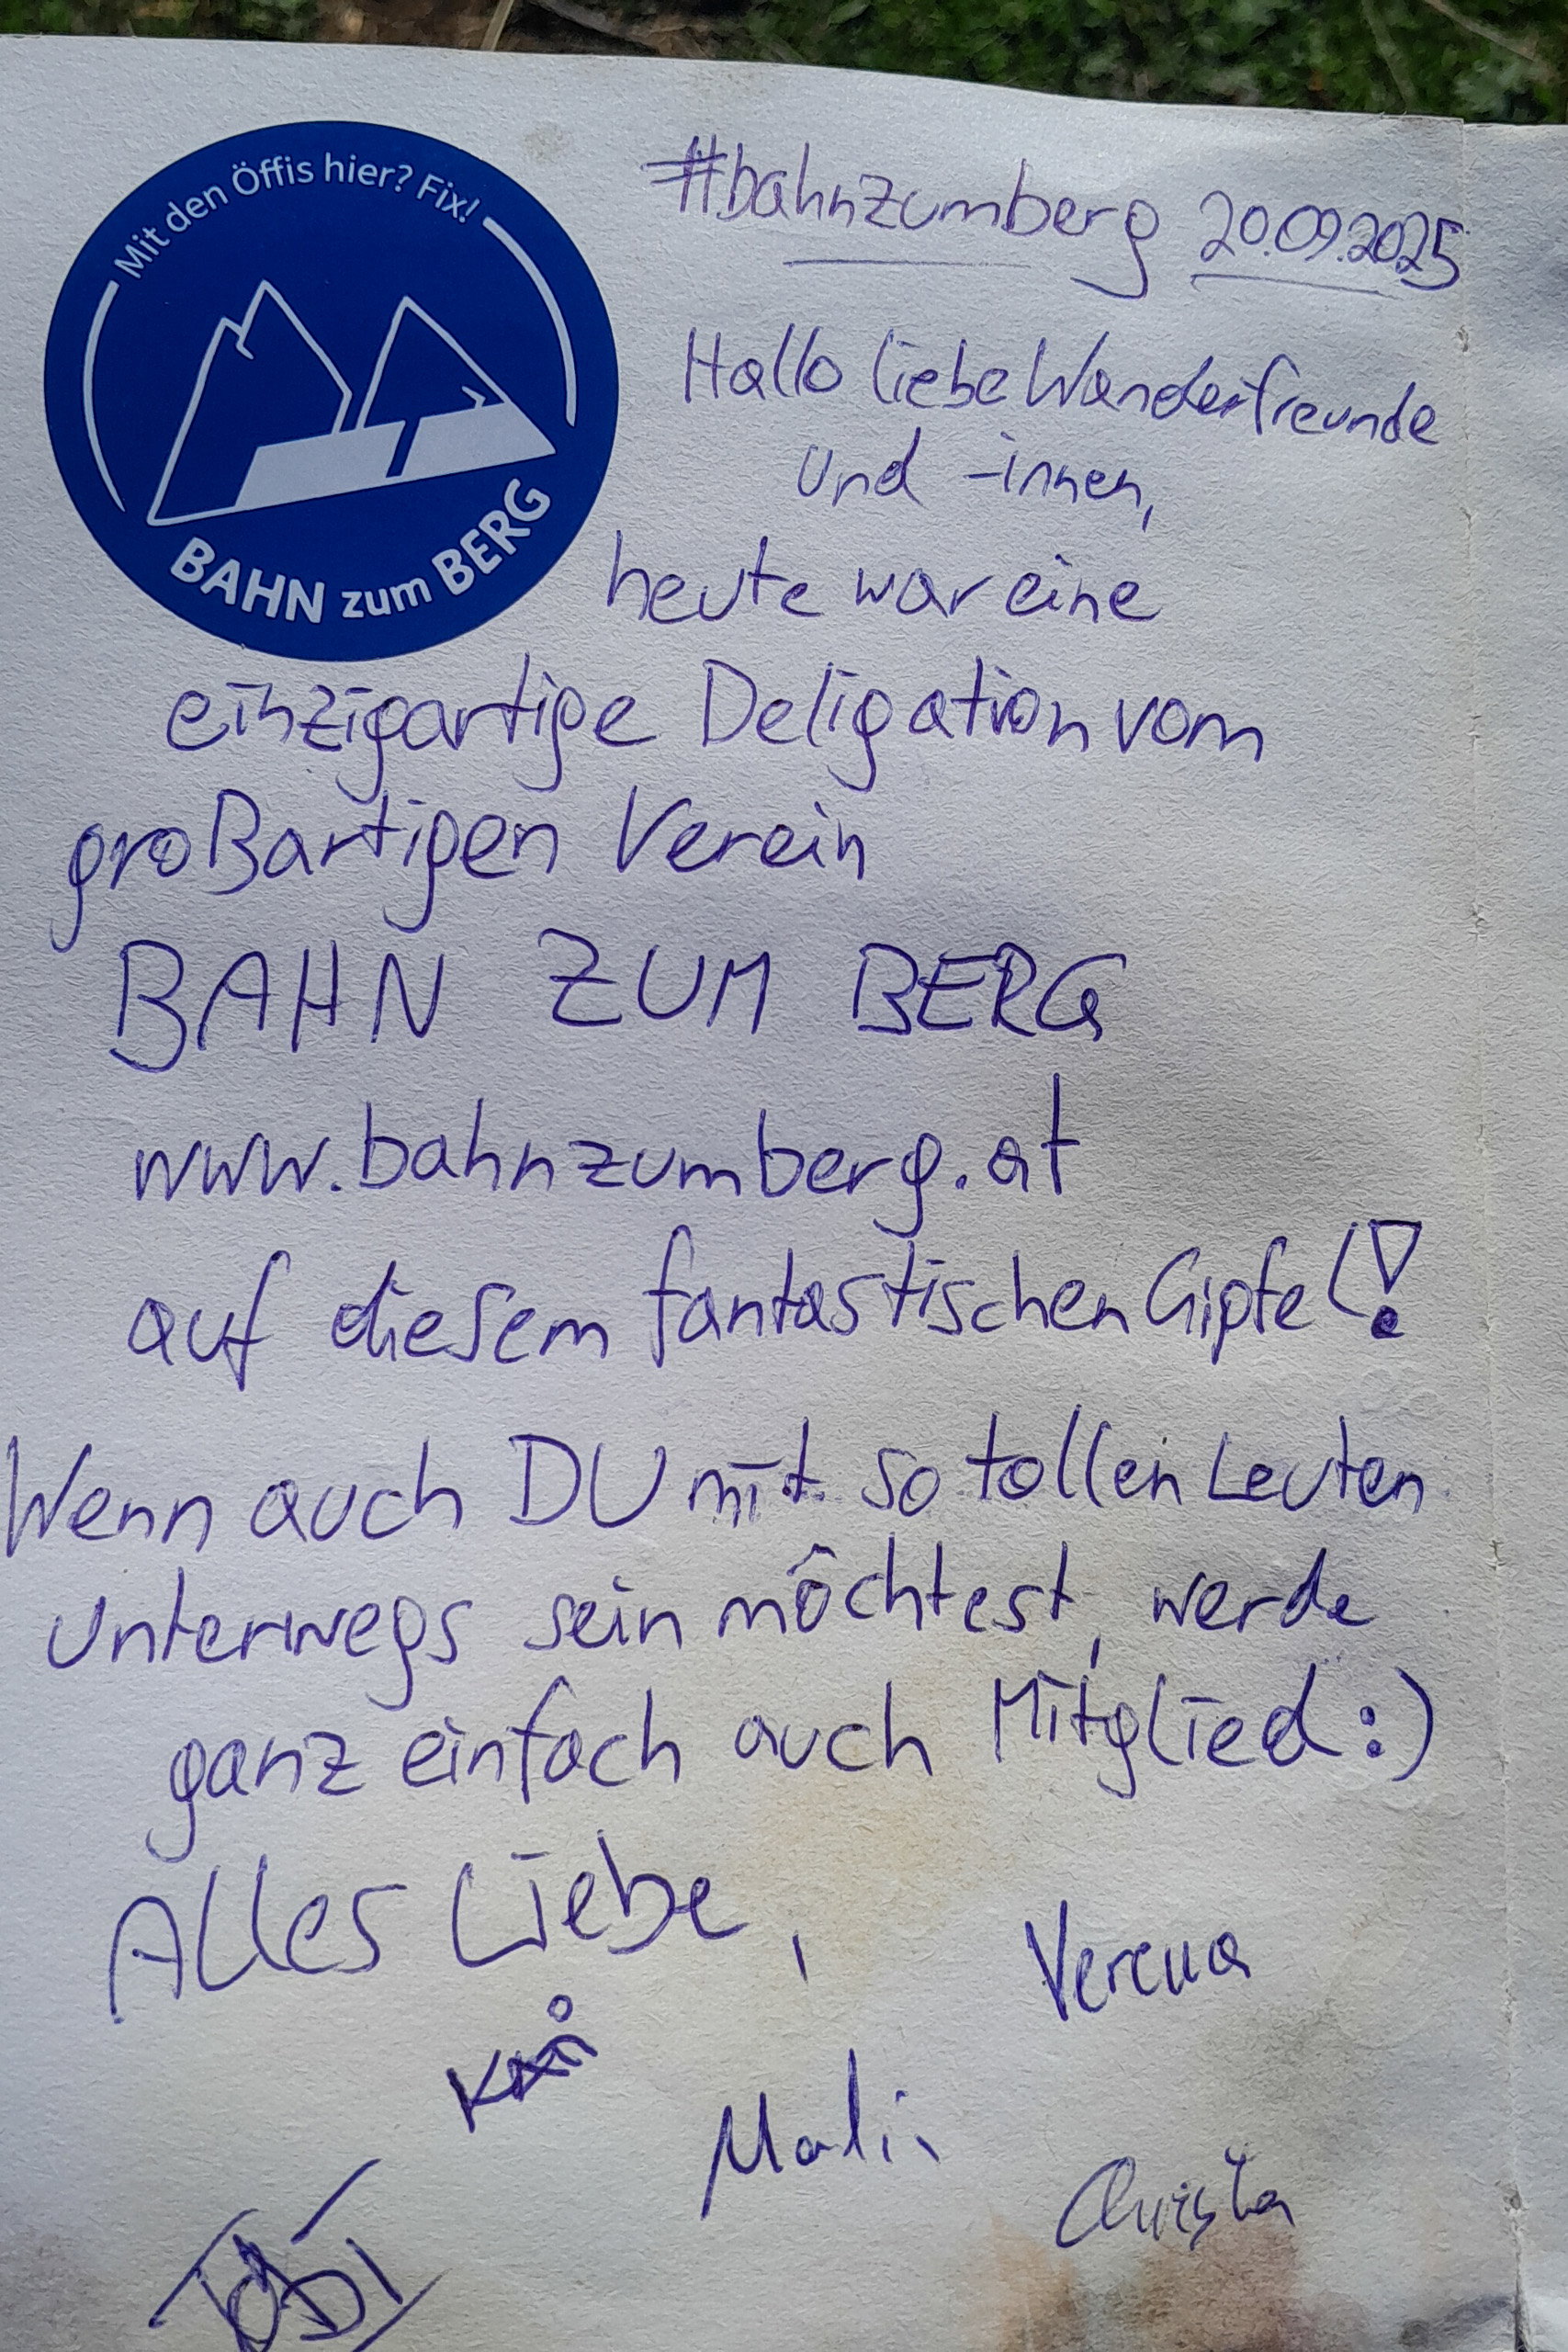 Mit den Öffis hier? Fix!
BAHN zum BERG
#bahnzumberg 20.09.2025
Hallo liebe Wanderfreunde
und -innen,
heute war eine
einzigartige Deligation vom
großartigen Verein
BAHN ZUM BERG
www.bahnzumberg.at
auf diesem fantastischen Gipfel!
Wenn auch DU mit so tollen Leuten
unterwegs sein möchtest, werde
ganz einfach auch Mitglied :)
Alles Liebe,
Verena
Christa
TOBI